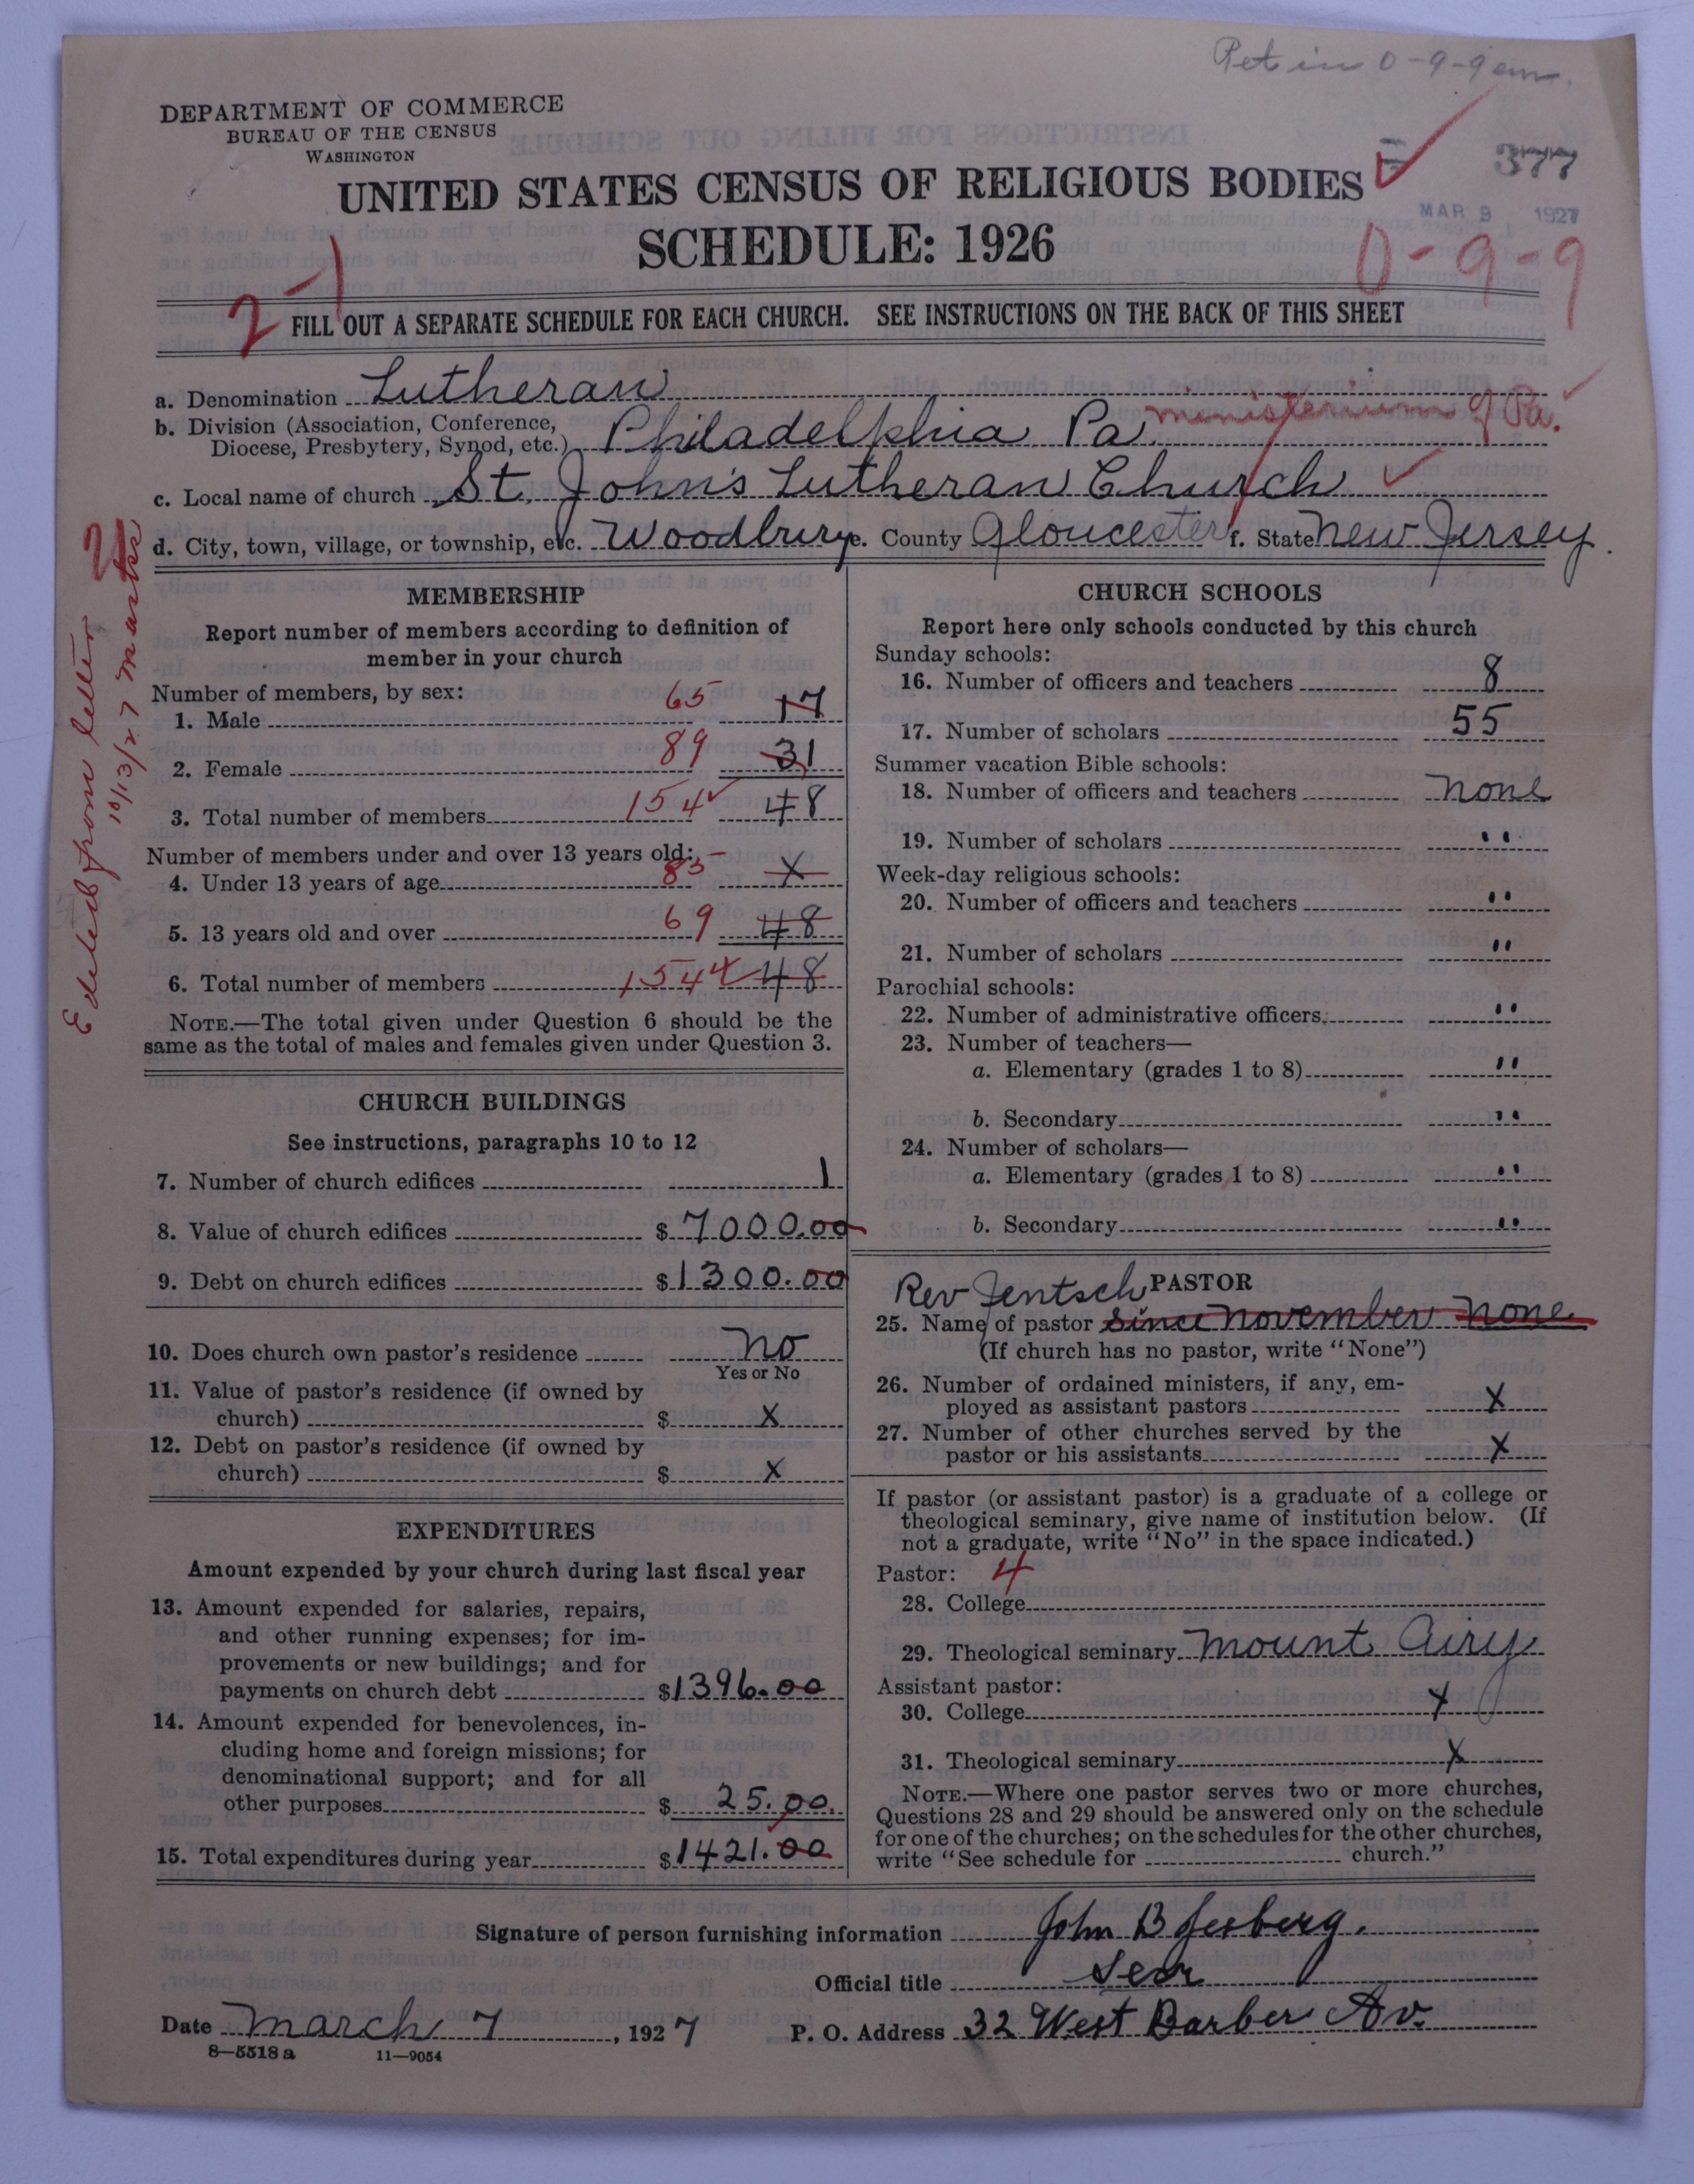 Ret in 0-9-9 em.
DEPARTMENT OF COMMERCE
BUREAU OF THE CENSUS
WASHINGTON
377
UNITED STATES CENSUS OF RELIGIOUS BODIES
MAR 9 1927
SCHEDULE: 1926
0-9-9
2-1
FILL OUT A SEPARATE SCHEDULE FOR EACH CHURCH. SEE INSTRUCTIONS ON THE BACK OF THIS SHEET
a. Denomination Lutheran
b. Division (Association, Conference, Diocese, Presbytery, Synod, etc.) Philadelphia Pa ministerium of Pa.
c. Local name of church St. John's Lutheran Church
d. City, town, village, or township, etc. Woodbury e. County Gloucester f. State New Jersey.
Edited from letter
10/13/27
MEMBERSHIP
Report number of members according to definition of
member in your church
Number of members, by sex:
1. Male 65 17
2. Female 89 31
3. Total number of members 154 48
Number of members under and over 13 years old:
4. Under 13 years of age 85 X
5. 13 years old and over 69 48
6. Total number of members 154 48
NOTE.—The total given under Question 6 should be the
same as the total of males and females given under Question 3.
CHURCH BUILDINGS
See instructions, paragraphs 10 to 12
7. Number of church edifices 1
8. Value of church edifices $ 7000.00
9. Debt on church edifices $ 1300.00
10. Does church own pastor's residence No
Yes or No
11. Value of pastor's residence (if owned by
church) $ X
12. Debt on pastor's residence (if owned by
church) $ X
EXPENDITURES
Amount expended by your church during last fiscal year
13. Amount expended for salaries, repairs,
and other running expenses; for im-
provements or new buildings; and for
payments on church debt $1396.00
14. Amount expended for benevolences, in-
cluding home and foreign missions; for
denominational support; and for all
other purposes $ 25.00
15. Total expenditures during year $1421.00
CHURCH SCHOOLS
Report here only schools conducted by this church
Sunday schools:
16. Number of officers and teachers 8
17. Number of scholars 55
Summer vacation Bible schools:
18. Number of officers and teachers None
19. Number of scholars "
Week-day religious schools:
20. Number of officers and teachers "
21. Number of scholars "
Parochial schools:
22. Number of administrative officers "
23. Number of teachers—
a. Elementary (grades 1 to 8) "
b. Secondary "
24. Number of scholars—
a. Elementary (grades 1 to 8) "
b. Secondary "
Rev Jentsch PASTOR
25. Name of pastor Since November None
(If church has no pastor, write "None")
26. Number of ordained ministers, if any, em-
ployed as assistant pastors X
27. Number of other churches served by the
pastor or his assistants X
If pastor (or assistant pastor) is a graduate of a college or
theological seminary, give name of institution below. (If
not a graduate, write "No" in the space indicated.)
Pastor: 4
28. College
29. Theological seminary Mount Airy
Assistant pastor:
30. College X
31. Theological seminary X
NOTE.—Where one pastor serves two or more churches,
Questions 28 and 29 should be answered only on the schedule
for one of the churches; on the schedules for the other churches,
write "See schedule for church."
Signature of person furnishing information John B
Official title Secr
Date March 7, 1927 P. O. Address 32 West Barber Av.
8—5518 a 11—9054